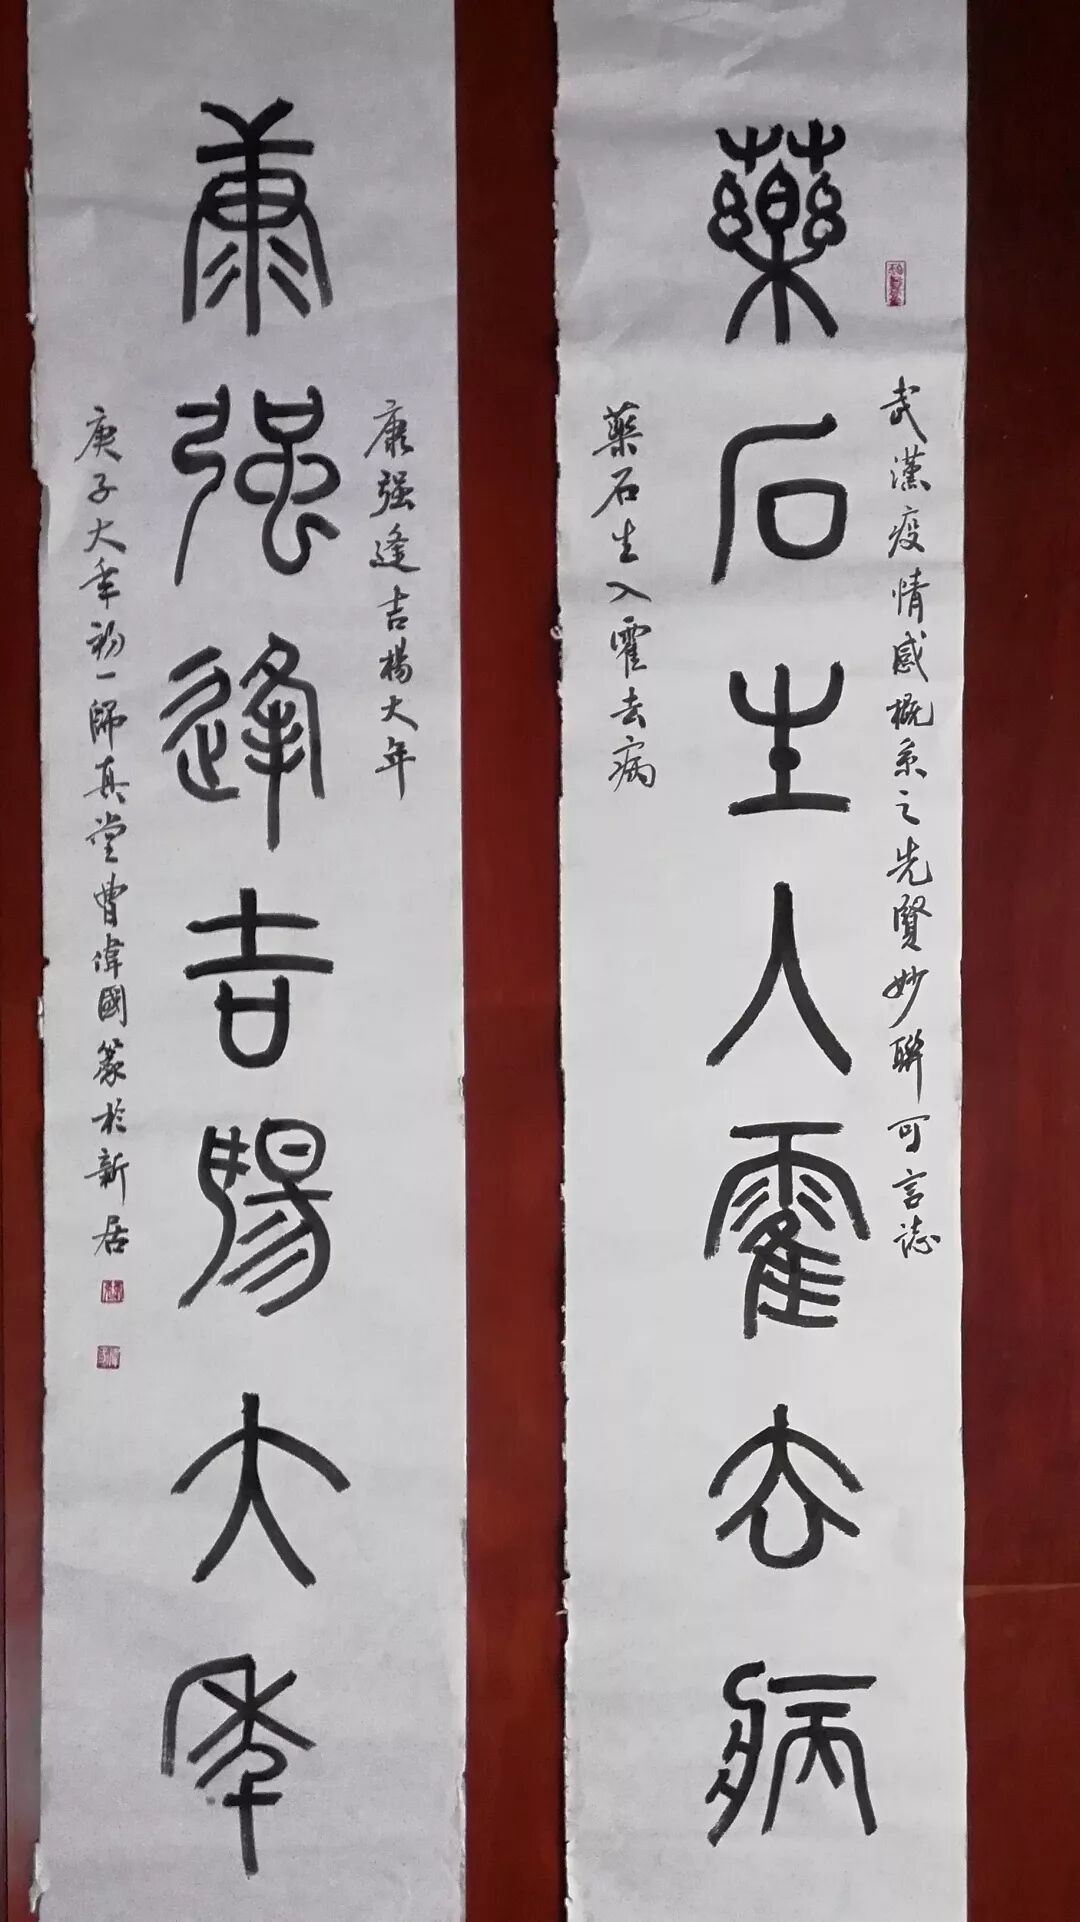 藥石生人霍去病
武漢疫情感概系之先賢妙聯可言誌
藥石生入霍去病
康強逢吉楊大年
康强逢吉楊大年
庚子大年初一師真堂曹偉國篆於新居